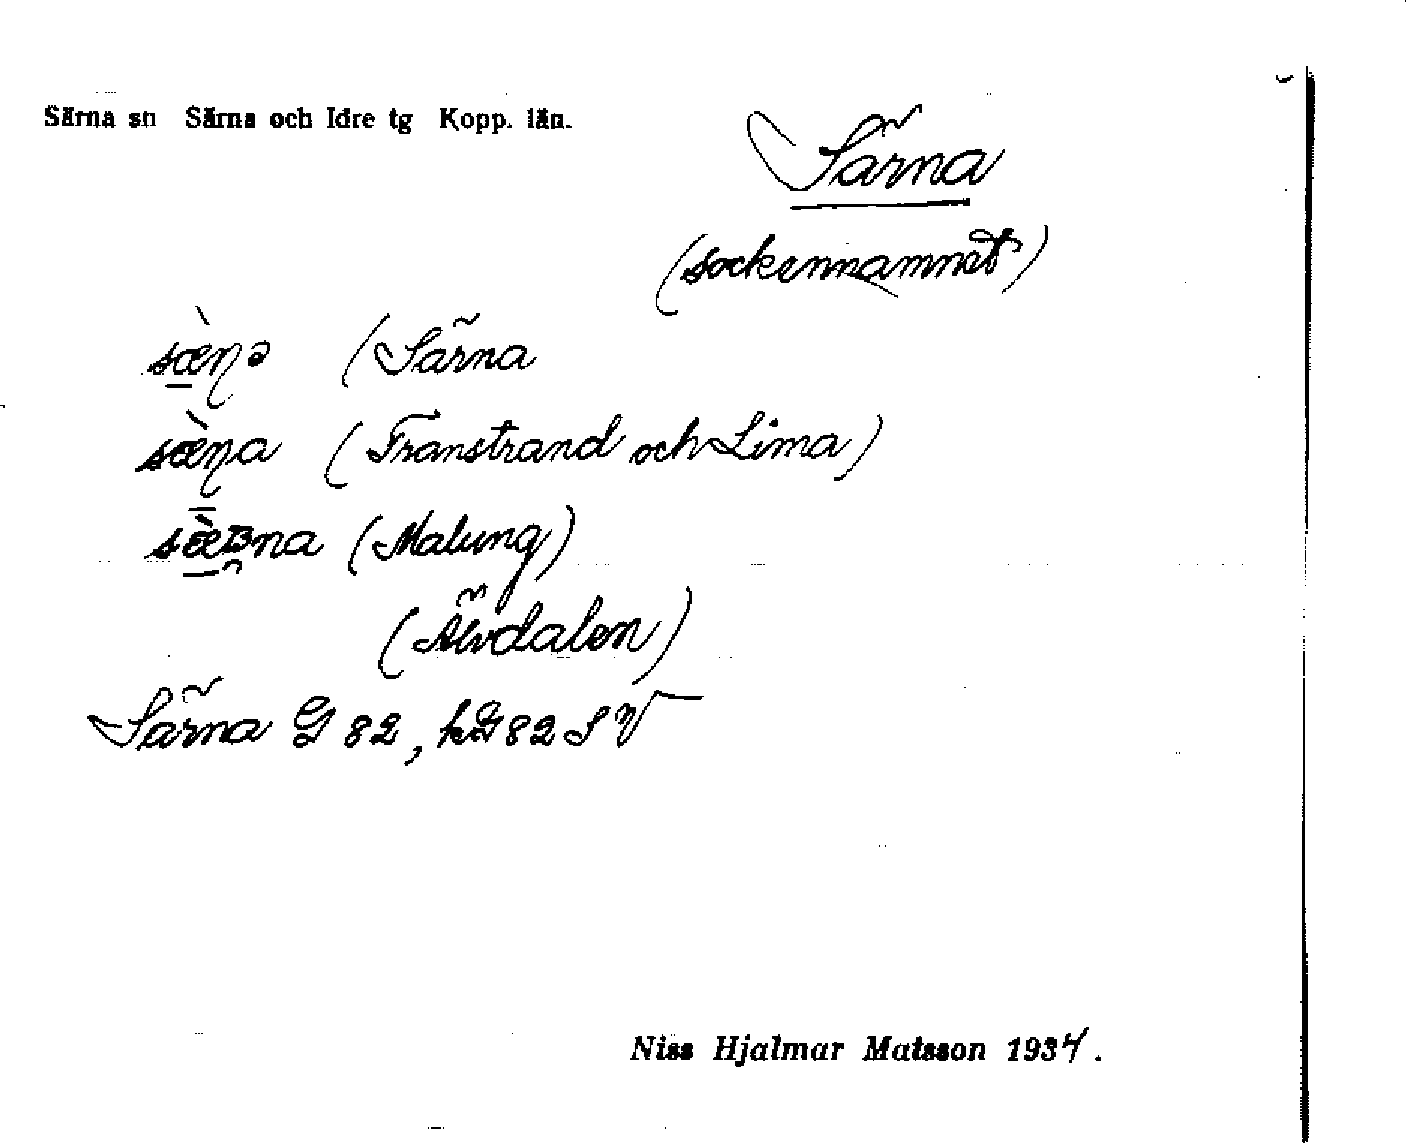 Särna sn Särna och Idre tg Kopp. län.
Särna
(sockennamnet)
sæ̀ɳə (Särna
sæ̀ɳa (Transtrand och Lima)
(Malung)
(Älvdalen)
Särna G 82, hG 82 S V
Niss Hjalmar Matsson 1934.